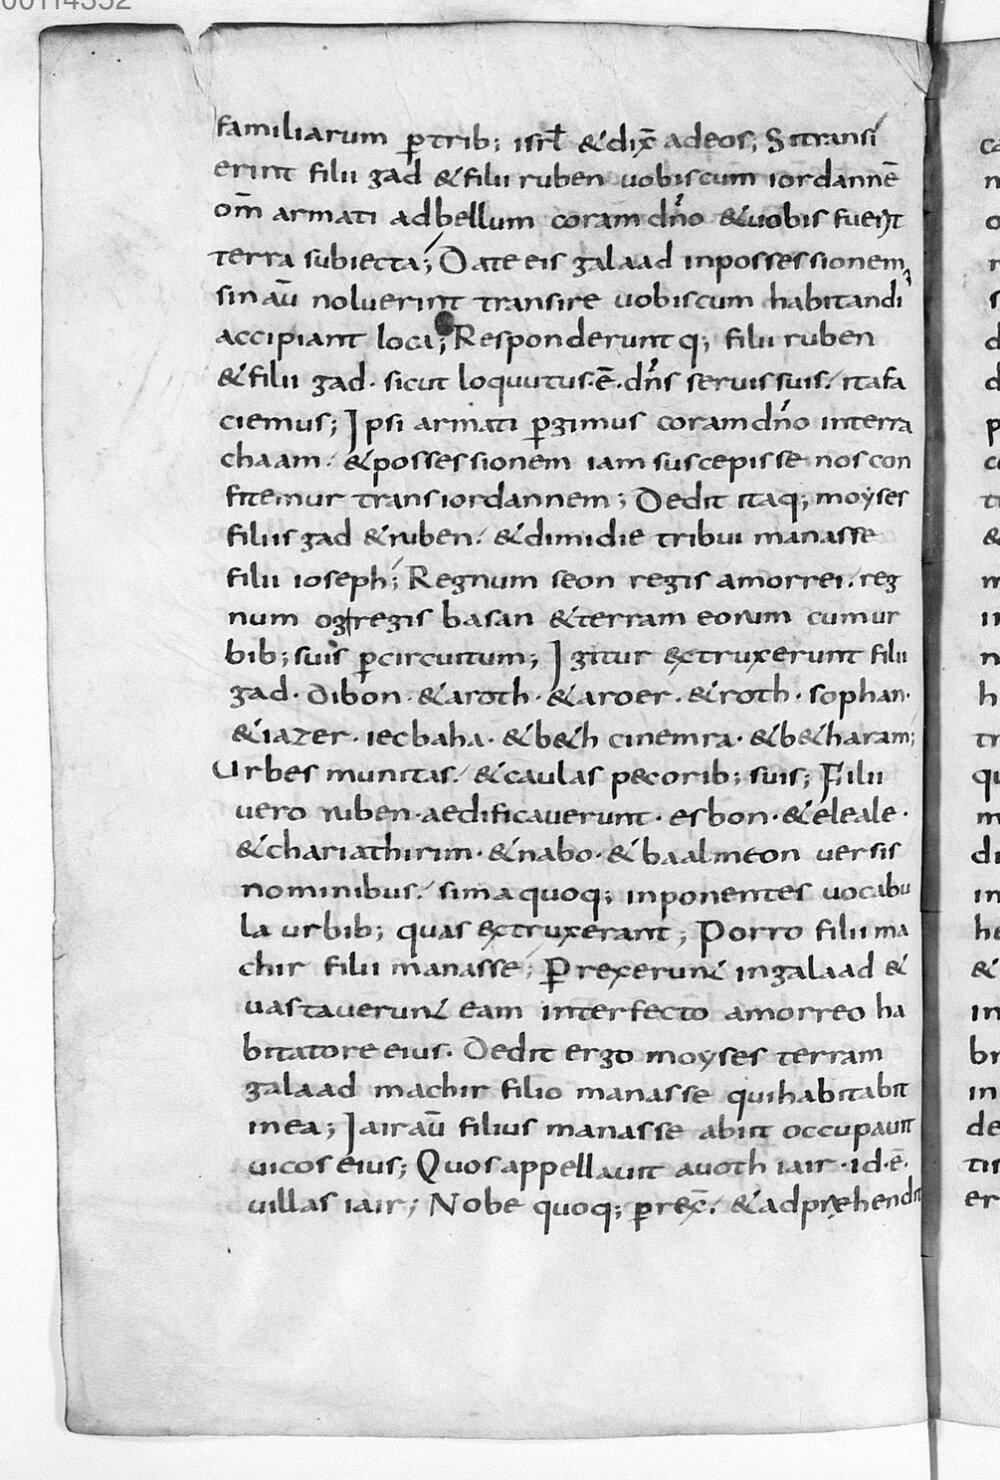 00114352
familiarum ꝑ trib; isrł & dix̄ adeos; Sitransi
erint filii gad & filii ruben uobiscum iordannē
om̄ armati adbellum coram dn̄o & uobis fuerit
terra subiecta; Date eis galaad inpossessionem
sin aū noluerint transire uobiscum habitandi
accipiant loca; Responderuntq; filii ruben
& filii gad · sicut loquutus·ē·dn̄s seruissuis. itafa
ciemus; Ipsi armati ꝑgimus coram dn̄o interra
chaam. & possessionem iam suscepisse nos con
fitemur trans iordannem; Dedit itaq; moyses
filiis gad & ruben. & dimidie tribui manasse
filii ioseph; Regnum seon regis amorrei. reg
num og regis basan & terram eorum cumur
bib; suis ꝑcircuitum; Igitur extruxerunt filii
gad · dibon · & aroth · & aroer · & roth · sophan·
& iazer · iecbaha · & b&h cinemra · & b&haram;
Urbes munitas. & caulas pecorib; suis; Filii
uero ruben · aedificauerunt · esbon · & eleale ·
& chariathirim · & nabo · & baalmeon uersis
nominibus. simaquoq; inponentes uocabu
la urbib; quas extruxerant; Porro filii ma
chir filii manasse; Ꝑrexerun& ingalaad &
uastauerun& eam interfecto amorreo ha
bitatore eius. Dedit ergo moyses terram
galaad machir filio manasse quihabitabit
inea; Iairaū filius manasse abiit occupauit
uicos eius; Quos appellauit auoth iair · id·ē·
uillas iair; Nobe quoq; ꝑrex̄. & adprehendit